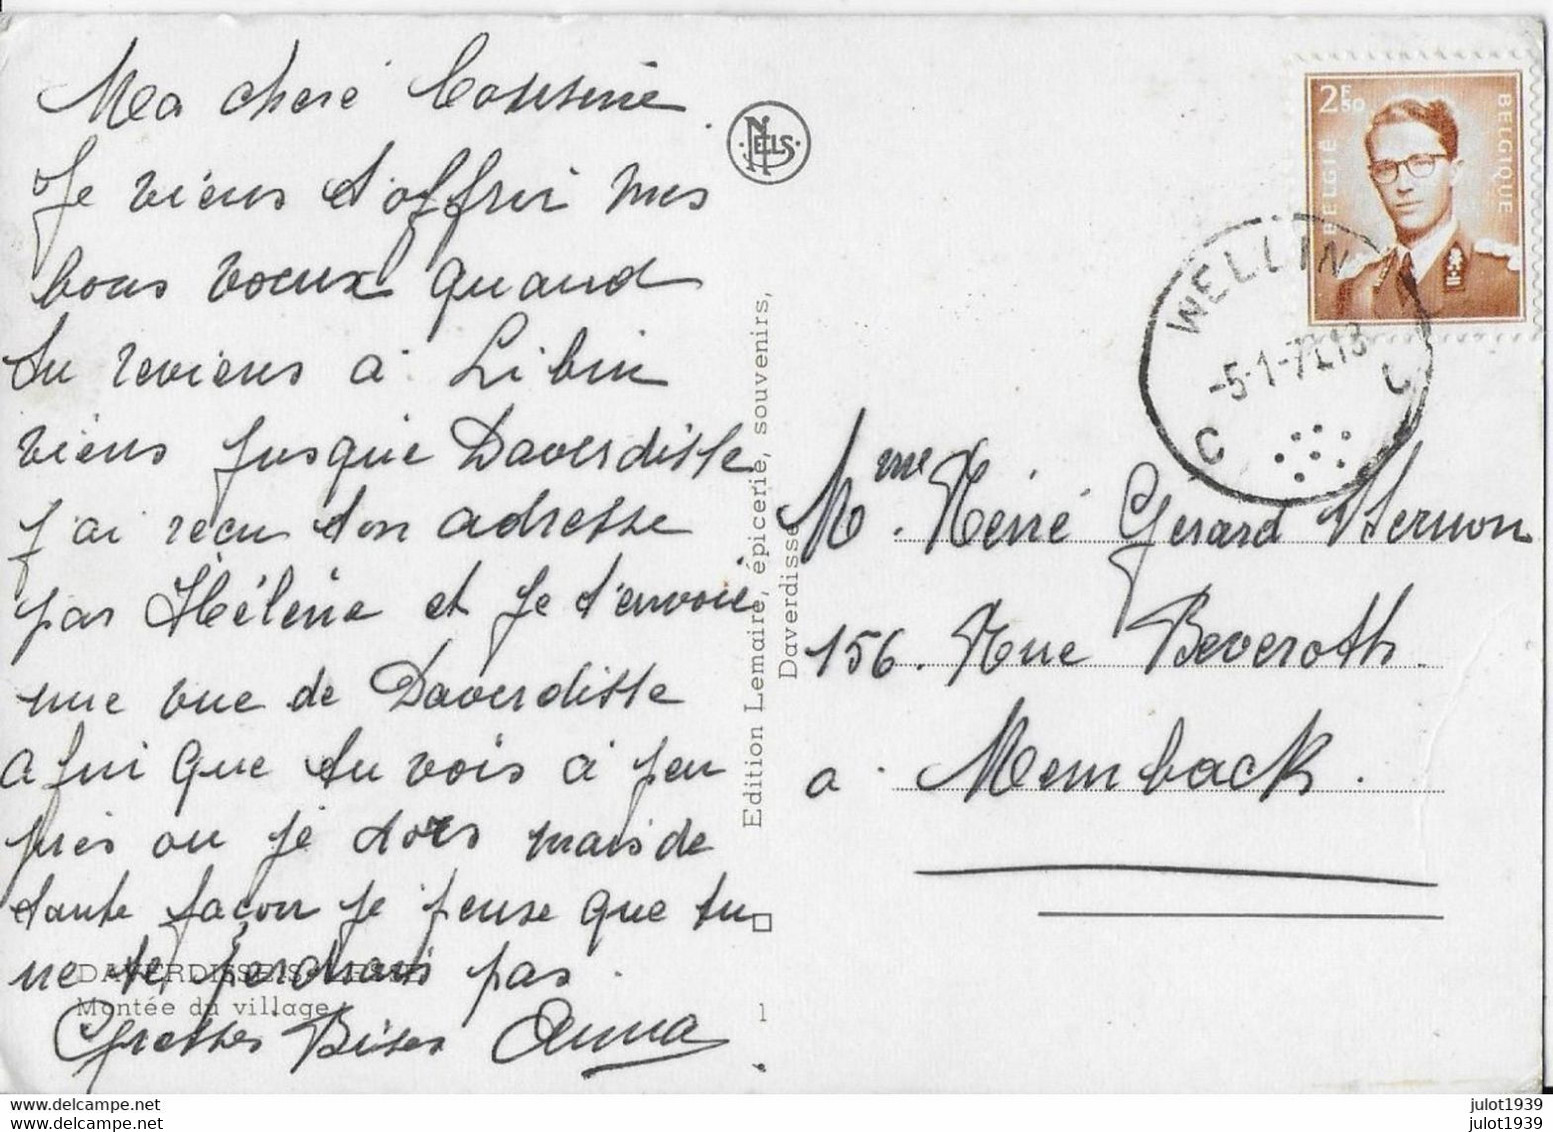 Ma cheré Coussine.
Je viens t'offrir mes
bons voeux quand
tu reviens à Libin
viens jusque Daverdisse
j'ai reçu ton adresse
par Hélène et je t'envoie
une vue de Daverdisse
afin que tu vois à peu
près ou je dors mais de
toute façon je pense que tu
ne te perdrais pas.
Grosses Bises Anna
DAVERDISSE S/LESSE
Montée du village
1
NELS
Edition Lemaire, épicerie, souvenirs,
Daverdisse
2F50
BELGIË
BELGIQUE
WELLIN
-5-1-7 13
C C
Mme. Réné Gérard
156. Rue Beveroth.
a Membach.
julot1939
julot1939
www.delcampe.net
www.delcampe.net